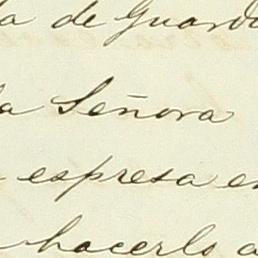 a de Guard
a Señora
espresa e
hacerlo a